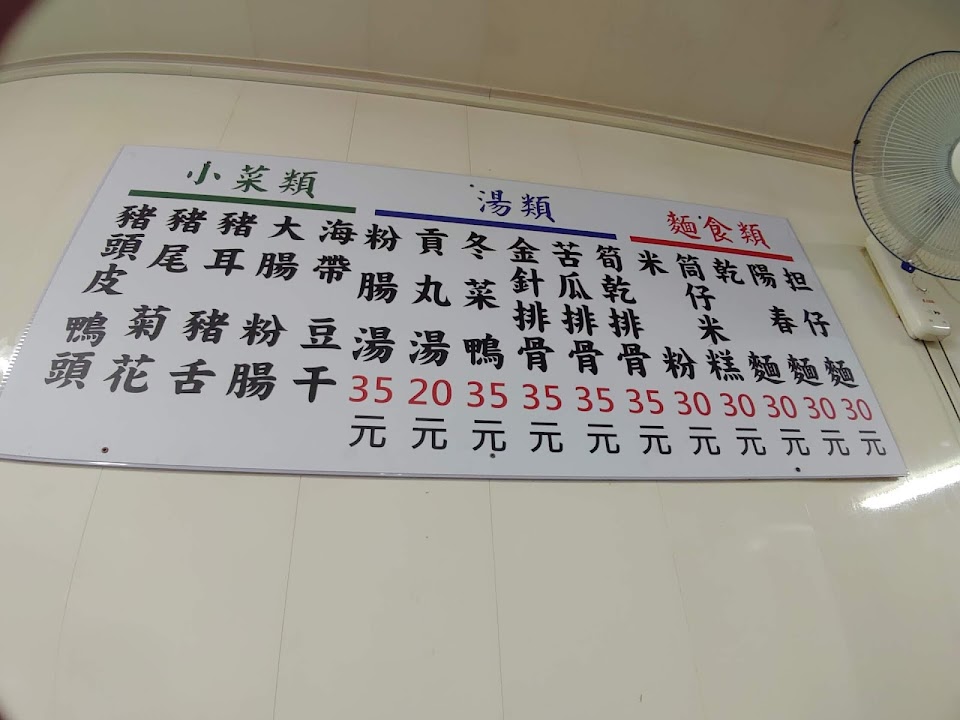 麵食類
担仔麵30元
陽春麵30元
乾麵30元
筒仔米糕30元
米粉30元
湯類
筍乾排骨35元
苦瓜排骨35元
金針排骨35元
冬菜鴨35元
貢丸湯20元
粉腸湯35元
小菜類
海帶 豆干
大腸 粉腸
豬耳 豬舌
豬尾 菊花
豬頭皮 鴨頭